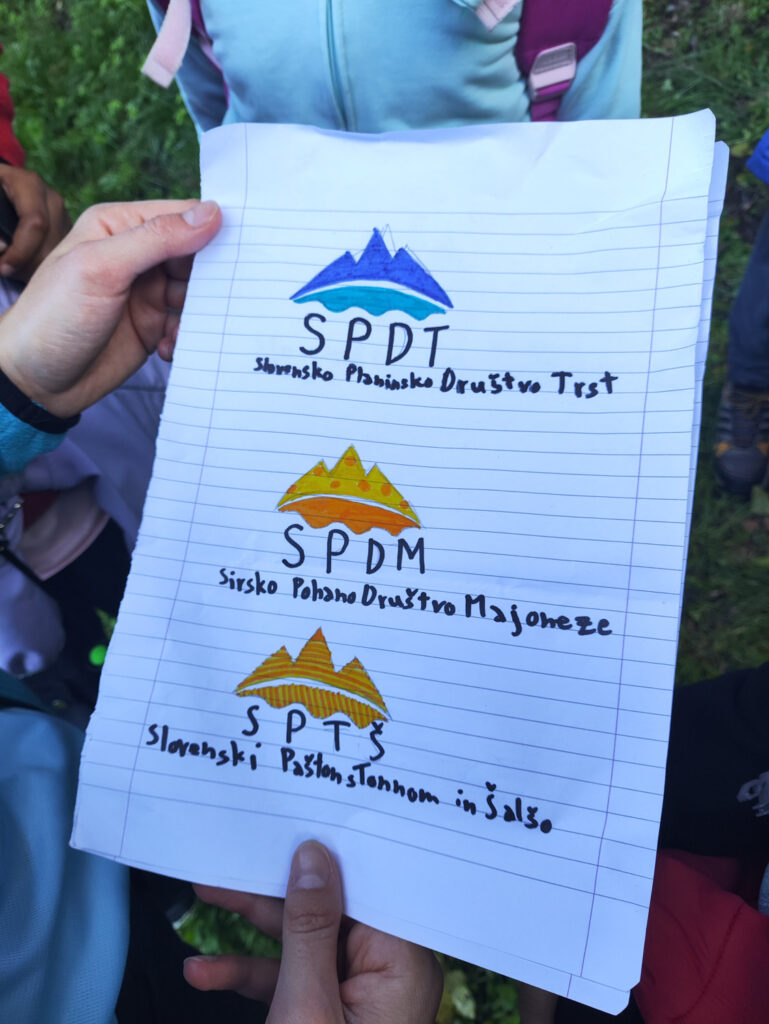 SPDT
Slovensko Planinsko Društvo Trst
SPDM
Sirsko Pohano Društvo Majoneze
SPTŠ
Slovenski Pašton s Tonnom in Šalšo